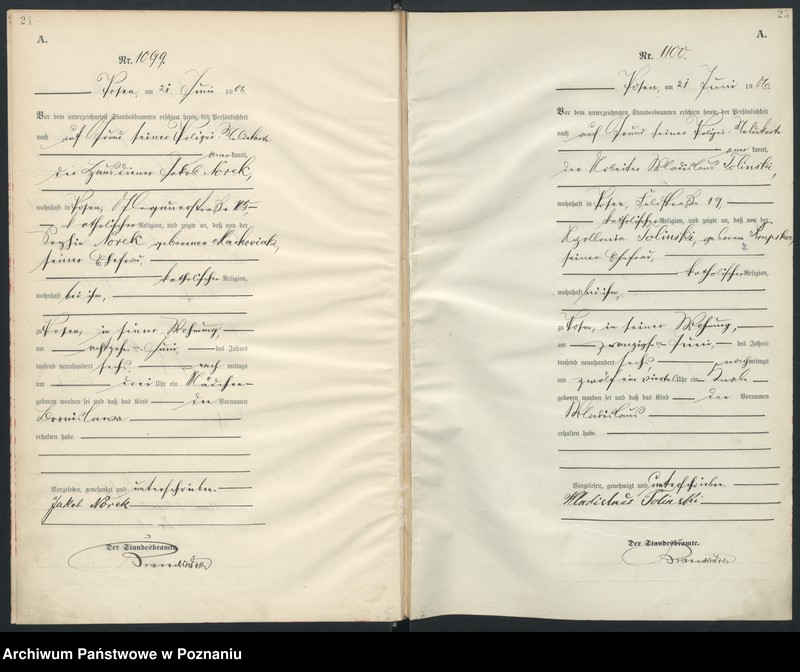 24
A.
Nr. 1099.
Posen, am 21 Juni 1906.
Vor dem unterzeichneten Standesbeamten erschien heute, der Persönlichkeit
nach auf Grund seiner Polizei-Meldekarte
anerkannt,
der Hausdiener Jakob Norek,
wohnhaft in Posen,
katholischer Religion, und zeigte an, daß von der
Sophie Norek geborenen Maćkowiak,
seiner Ehefrau,
katholischer Religion,
wohnhaft bei ihm,
zu Posen, in seiner Wohnung,
am achtzehnten Juni, des Jahres
tausend neunhundert sechs nachmittags
um drei Uhr ein Mädchen
geboren worden sei und daß das Kind den Vornamen
Bronislawa
erhalten habe.
Vorgelesen, genehmigt und unterschrieben
Jakob Norek
Der Standesbeamte.
25
A.
Nr. 1100.
Posen, am 21 Juni 1906.
Vor dem unterzeichneten Standesbeamten erschien heute, der Persönlichkeit
nach auf Grund seiner Polizei-Meldekarte
anerkannt,
der Arbeiter Wladislaus Tolinski,
wohnhaft in Posen, 19,
katholischer Religion, und zeigte an, daß von der
Apollonia Tolinski, geborenen
seiner Ehefrau,
katholischer Religion,
wohnhaft bei ihm,
zu Posen, in seiner Wohnung,
am zwanzigsten Juni, des Jahres
tausend neunhundert sechs nachmittags
um zwölf ein viertel Uhr ein Knabe
geboren worden sei und daß das Kind den Vornamen
Wladislaus
erhalten habe.
Vorgelesen, genehmigt und unterschrieben
Wladislaus Tolinski
Der Standesbeamte.
Archiwum Państwowe w Poznaniu